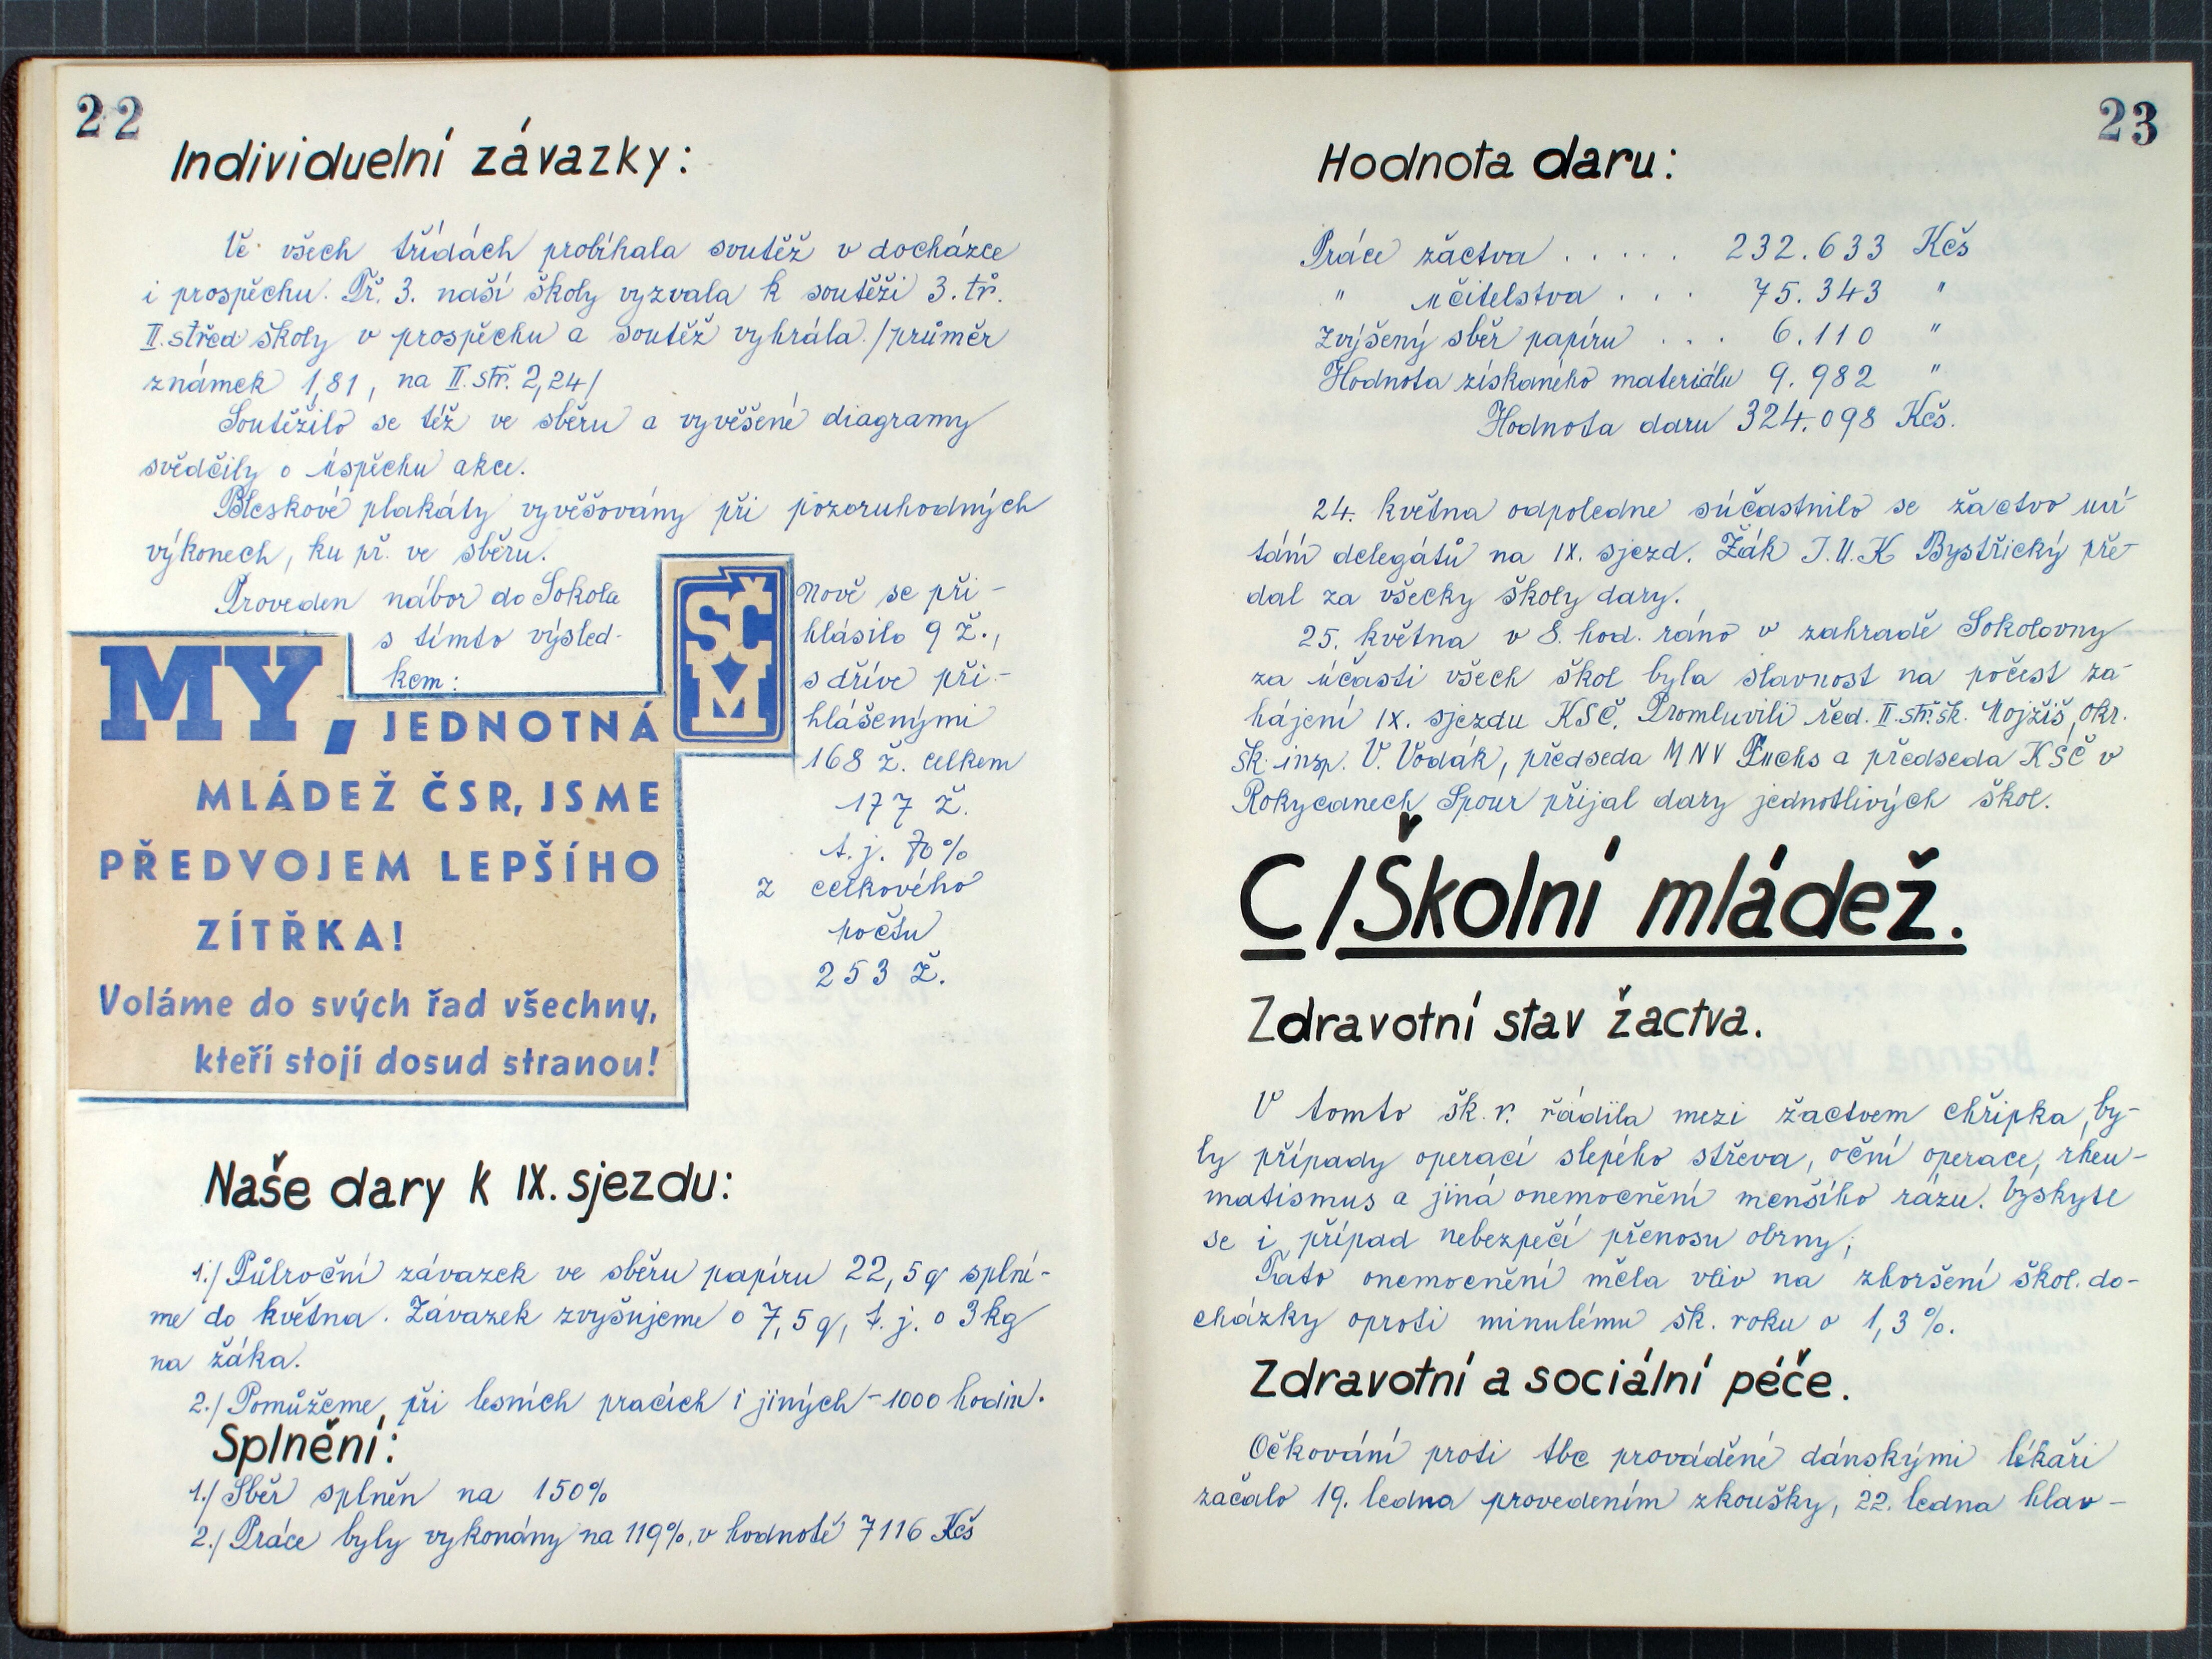 22
Individuelní závazky:
Ve všech třídách probíhala soutěž v docházce
i prospěchu. Tř. 3. naší školy vyzvala k soutěži 3. tř.
II. střed školy v prospěchu a soutěž vyhrála. /průměr
známek 1,81, na II. stř. 2,24/
Soutěžilo se též ve sběru a vyvěšené diagramy
svědčily o úspěchu akce.
Bleskové plakáty vyvěšovány při pozoruhodných
výkonech, ku př. ve sběru.
Proveden nábor do Sokola
s tímto výsled-
kem:
MY, JEDNOTNÁ
MLÁDEŽ ČSR, JSME
PŘEDVOJEM LEPŠÍHO
ZÍTŘKA!
Voláme do svých řad všechny,
kteří stojí dosud stranou!
SČM
Nově se při-
hlásilo 9 ž.,
s dříve při-
hlášenými
168 ž. celkem
177 ž.
t. j. 70%
z celkového
počtu
253 ž.
Naše dary k IX. sjezdu:
1./ Půlroční závazek ve sběru papíru 22,5 q splní-
me do května. Závazek zvyšujeme o 7,5 q, t. j. o 3 kg
na žáka.
2./ Pomůžeme při lesních pracích i jiných - 1000 hodin.
Splnění:
1./ Sběr splněn na 150%
2./ Práce byly vykonány na 119%, v hodnotě 7116 Kčs
23
Hodnota daru:
Práce žáctva . . . . . 232.633 Kčs
" učitelstva . . . 75.343 "
Zvýšený sběr papíru . . . 6.110 "
Hodnota získaného materiálu 9.982 "
Hodnota daru 324.098 Kčs.
24. května odpoledne súčastnilo se žactvo uví
tání delegátů na IX. sjezd. Žák J.U.K Bystřický pře-
dal za všecky školy dary.
25. května v 8. hod. ráno v zahradě Sokolovny
za účasti všech škol byla slavnost na počest za-
hájení IX. sjezdu KSČ. Promluvili řed. II. stř. šk. Nojžiš, okr.
šk. insp. V. Vodák, předseda MNV Fuchs a předseda KSČ v
Rokycanech Spour přijal dary jednotlivých škol.
C/Školní mládež.
Zdravotní stav žactva.
V tomto šk. r. řádila mezi žactvem chřipka, by-
ly případy operací slepého střeva, oční operace, rheu-
matismus a jiná onemocnění menšího rázu. Vyskytl
se i případ nebezpečí přenosu obrny;
Tato onemocnění měla vliv na zhoršení škol. do-
cházky oproti minulému šk. roku o 1,3 %.
Zdravotní a sociální péče.
Očkování proti tbc prováděné dánskými lékaři
začalo 19. ledna provedením zkoušky, 22. ledna hlav-